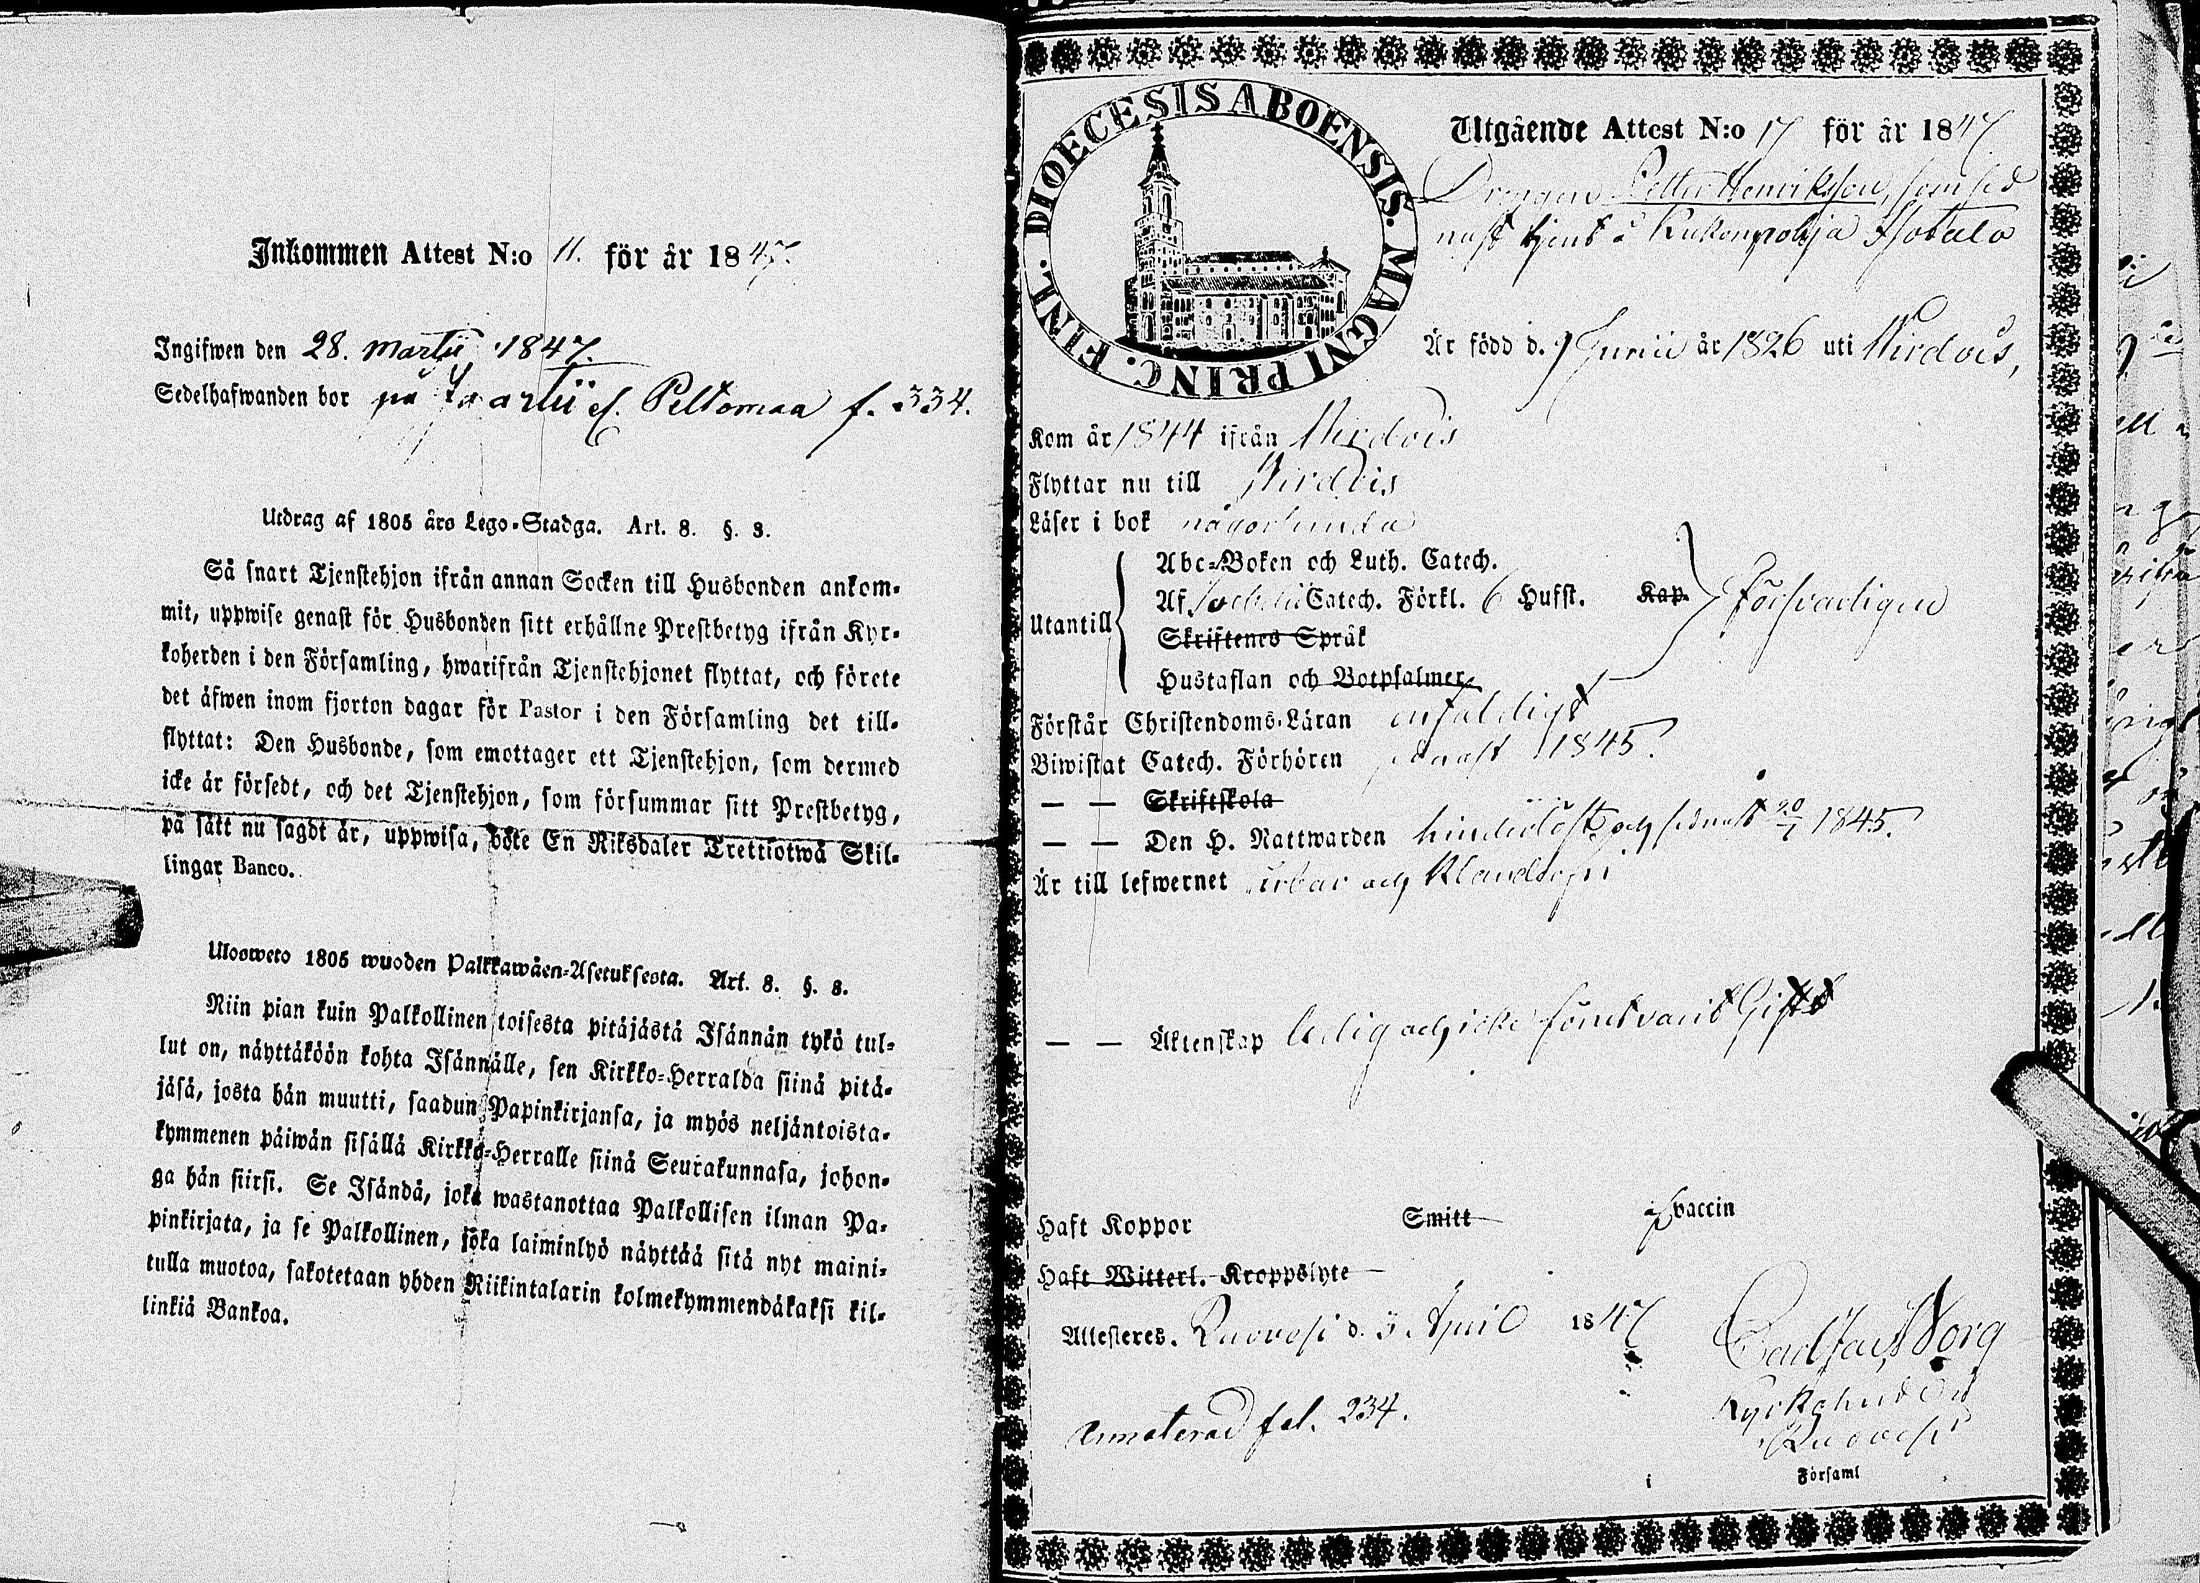 Inkommen Attest N:o 11. för år 1847.
Ingifwen den 28. Martii 1847.
Sedelhafwanden bor på Martii cl. Peltomaa f. 334.
Utdrag af 1805 års Lego-Stadga. Art. 8. §. 8.
Så snart Tjenstehjon ifrån annan Socken till Husbonden ankom-
mit, uppwise genast för Husbonden sitt erhållne Prestbetyg ifrån Kyr-
koherden i den Församling, hwarifrån Tjenstehjonet flyttat, och förete
det äfwen inom fjorton dagar för Pastor i den Församling det till-
flyttat: Den Husbonde, som emottager ett Tjenstehjon, som dermed
icke är försedt, och det Tjenstehjon, som försummar sitt Prestbetyg,
på sätt nu sagdt är, uppwisa, böte En Riksdaler Trettiotwå Skil-
lingar Banco.
Ulosweto 1805 wuoden Palkkawäen-Asetuksesta. Art. 8. §. 8.
Niin pian kuin Palkollinen toisesta pitäjästä Isännän tykö tul-
lut on, näyttäköön kohta Isännälle, sen Kirkko-Herralda siinä pitä-
jäsä, josta hän muutti, saadun Papinkirjansa, ja myös neljäntoista-
kymmenen päiwän sisällä Kirkko-Herralle siinä Seurakunnasa, johon-
ga hän siirsi. Se Isändä, joka wastanottaa Palkollisen ilman Pa-
pinkirjata, ja se Palkollinen, joka laiminlyö näyttää sitä nyt maini-
tulla muotoa, sakotetaan yhden Riikintalarin kolmekymmendäkaksi kil-
linkiä Bankoa.
DIOECESIS ABOENSIS. MAGNI PRINC. FINL.
Utgående Attest N:o 17 för år 1847
Drengen Petter Henriksson, som sed
nast tjent å Kukonpohja
Är född d. 9 Junii år 1826 uti Wirdois,
Kom år 1844 ifrån Wirdois
Flyttar nu till Wirdois
Läser i bok någorlunda
Utantill
Abc-Boken och Luth. Catech.
Af Catech. Förkl. 6 Hufst. Kap. Försvarligen
Skriftenes Språk
Hustaflan och Botpsalmer
Förstår Christendoms-Läran enfaldigt
Biwistat Catech. Förhören senast 1845.
— — Skriftskola
— — Den H. Nattwarden hinderlöst och sednast 20/7 1845.
Är till lefwernet ärbar och Klanderfri
— — Äktenskap ledig och icke förut varit Gift
Haft Koppor Smitt af vaccin
Haft Witterl. Kroppslyte
Attesteres. Ruovesi d. 3 April 1847
Carl Borg
Kyrkoherde i
Ruovesi
i Församl
Annoterad fol. 234.